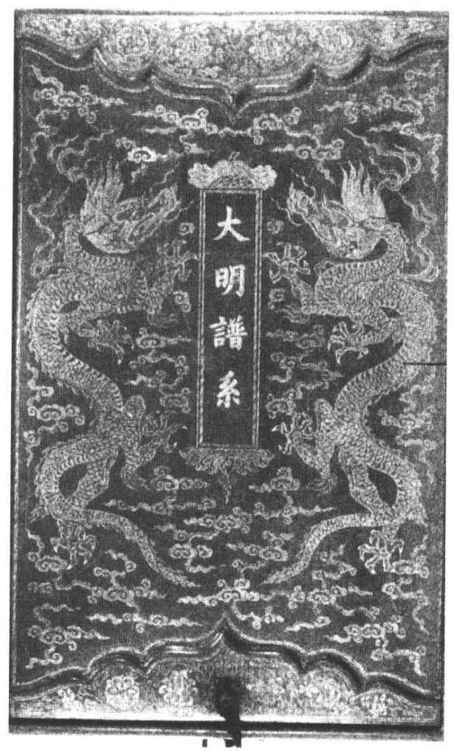 大明譜系